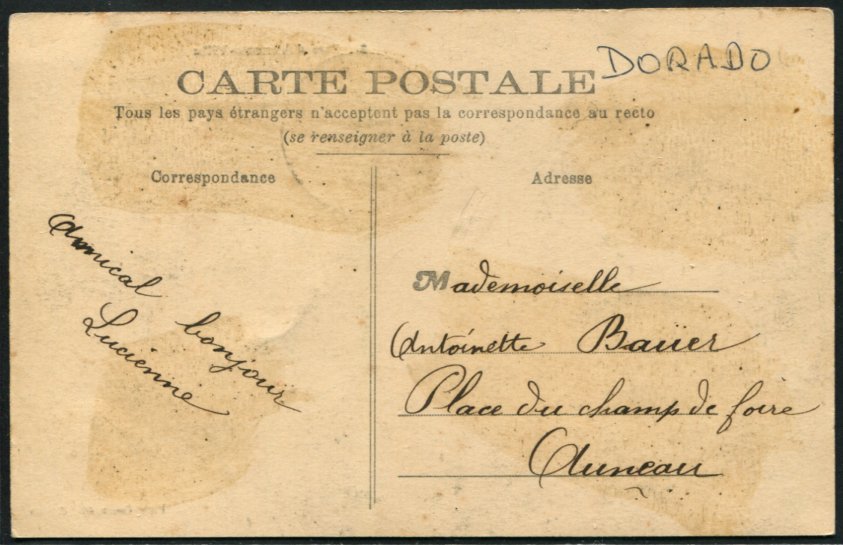 DORADO
CARTE POSTALE
Tous les pays étrangers n'acceptent pas la correspondance au recto
(se renseigner à la poste)
Correspondance
Adresse
Amical bonjour
Lucienne
Mademoiselle
Antoinette Baüer
Place du champ de foire
Auneau